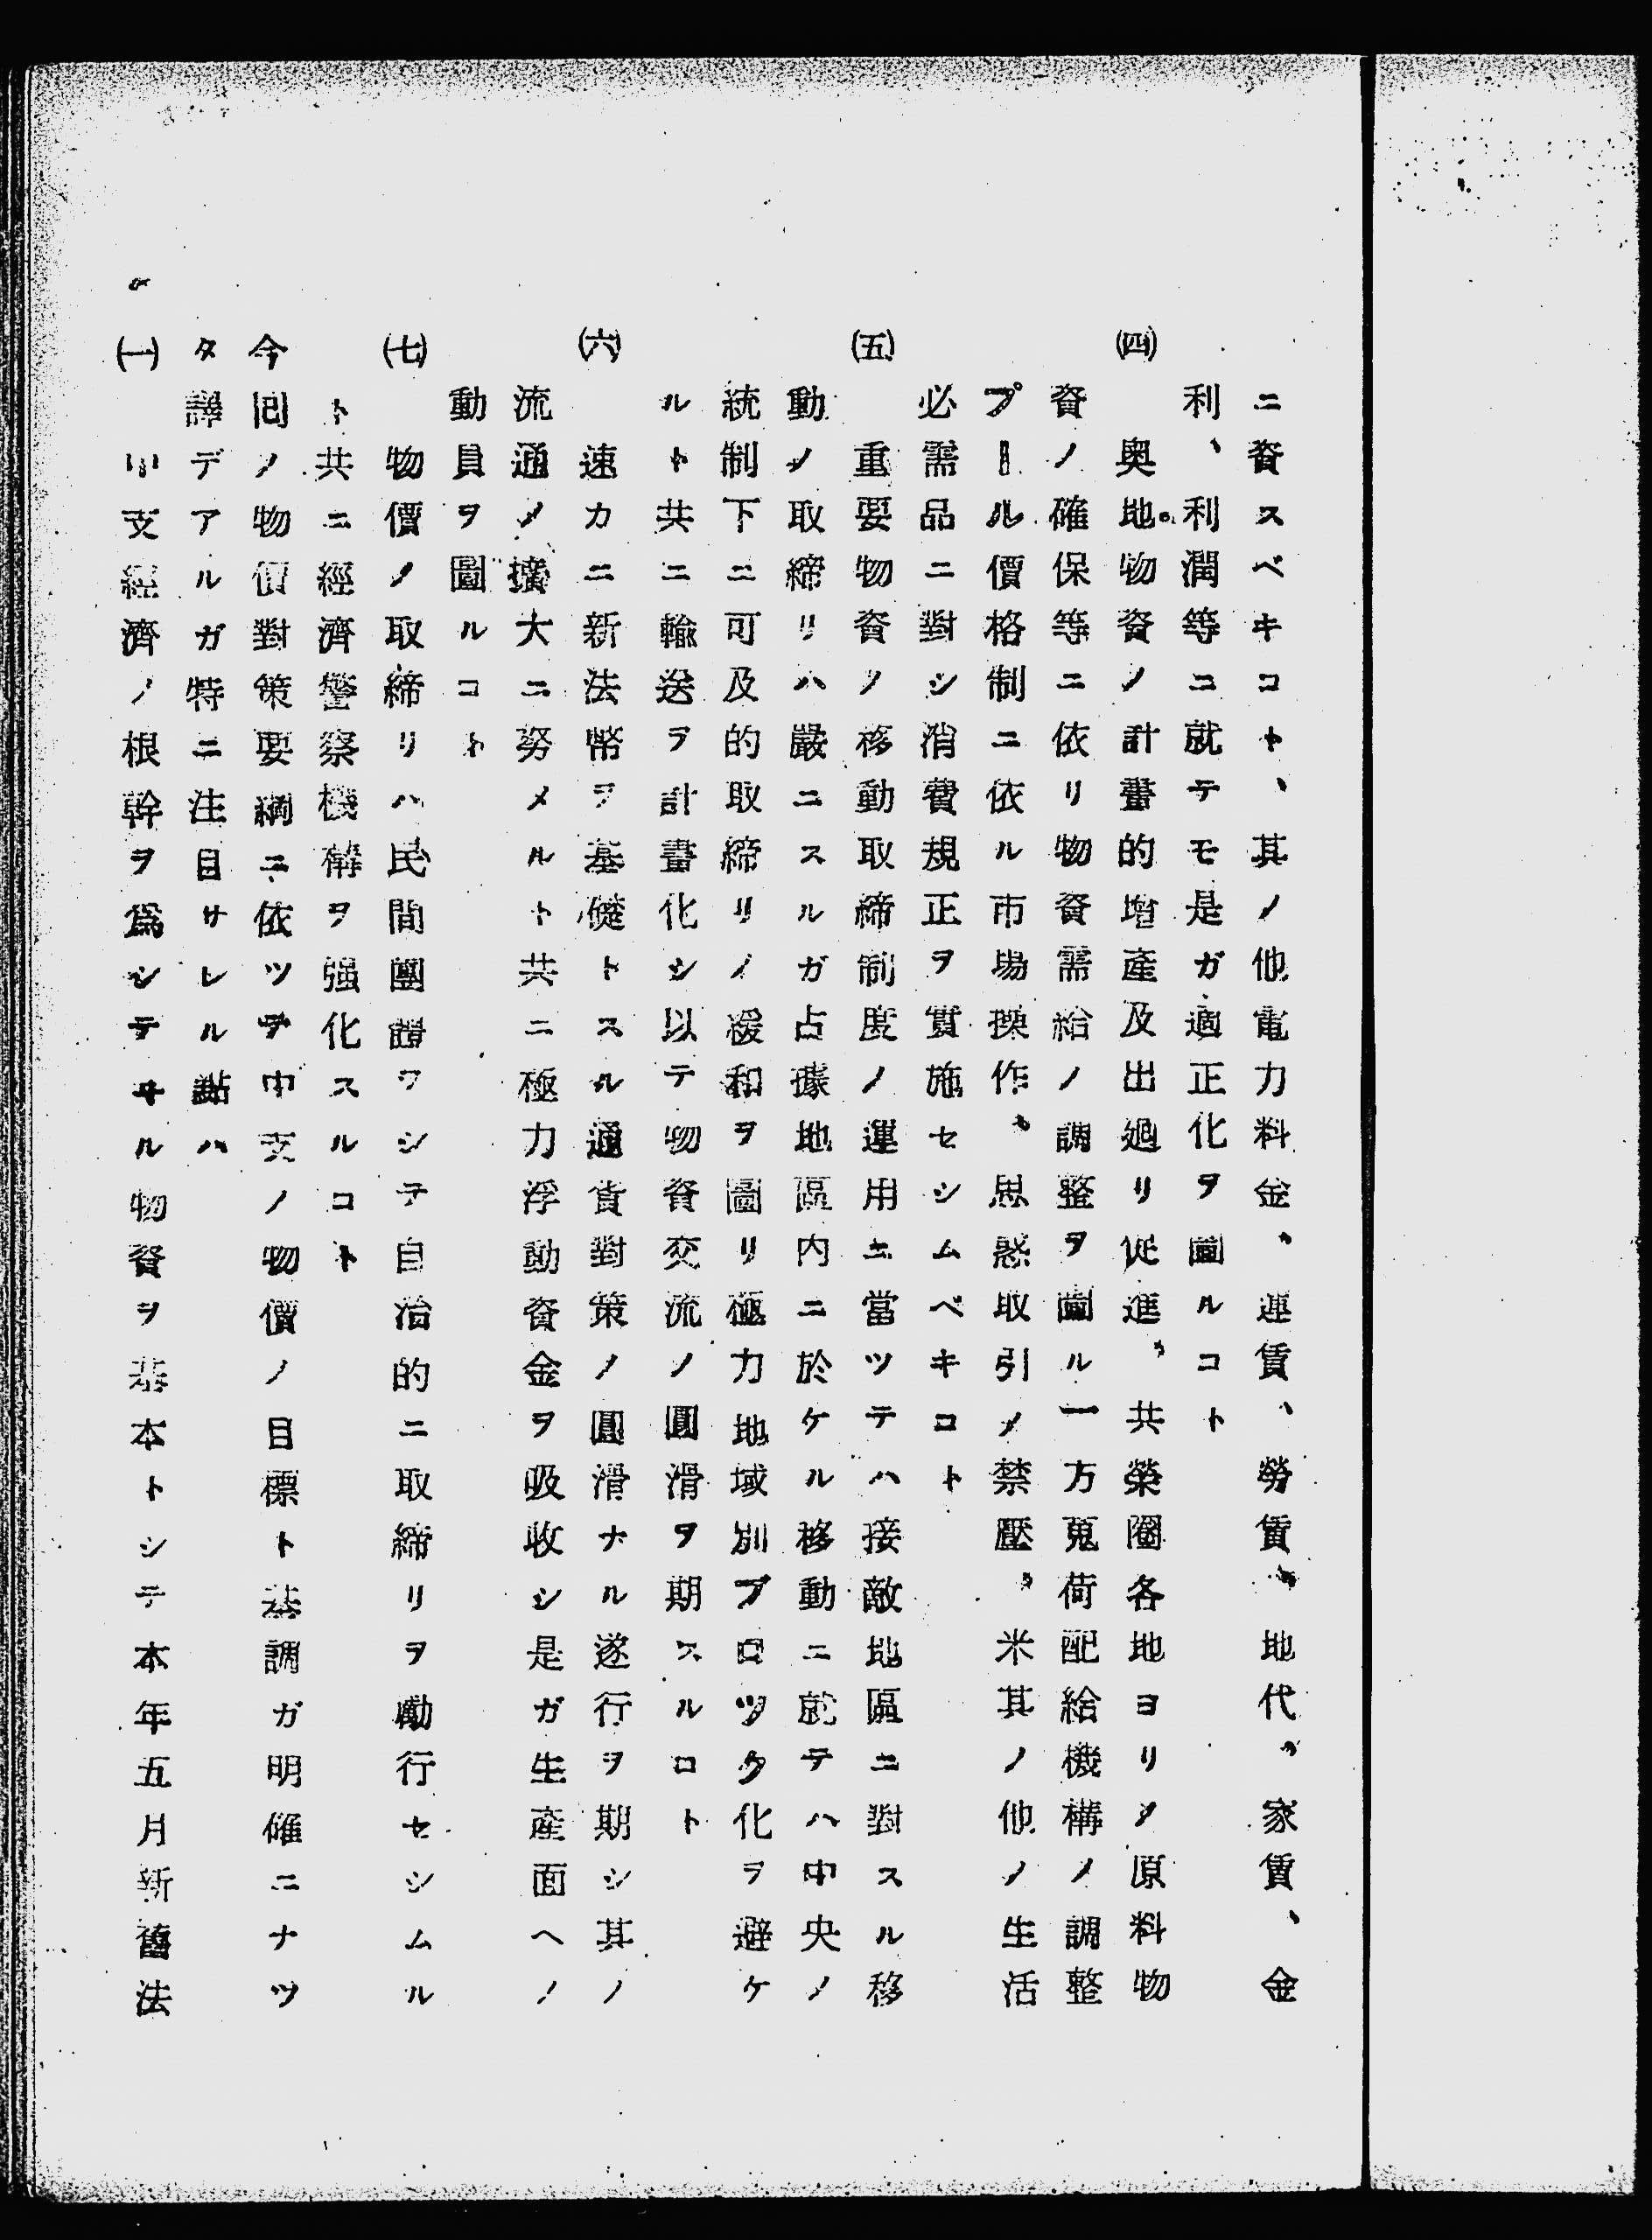 ニ資スベキコト、其ノ他電力料金、運賃、勞賃、地代、家賃、金
利、利潤等ニ就テモ是ガ適正化ヲ圖ルコト
㈣ 奥地物資ノ計畫的增産及出廻リ促進、共榮圈各地ヨリノ原料物
資ノ確保等ニ依リ物資需給ノ調整ヲ圖ル一方蒐荷配給機構ノ調整
プール價格制ニ依ル市場操作、思惑取引ノ禁壓、米其ノ他ノ生活
必需品ニ對シ消費規正ヲ實施セシムベキコト
㈤ 重要物資ノ移動取締制度ノ運用ニ當ツテハ接敵地區ニ對スル移
動ノ取締リハ嚴ニスルガ占據地區内ニ於ケル移動ニ就テハ中央ノ
統制下ニ可及的取締リノ緩和ヲ圖リ極力地域別ブロツク化ヲ避ケ
ルト共ニ輸送ヲ計畫化シ以テ物資交流ノ圓滑ヲ期スルコト
㈥ 速カニ新法幣ヲ基礎トスル通貨對策ノ圓滑ナル遂行ヲ期シ其ノ
流通ノ擴大ニ努メルト共ニ極力浮動資金ヲ吸收シ是ガ生産面ヘノ
動員ヲ圖ルコト
㈦ 物價ノ取締リハ民間團體ヲシテ自治的ニ取締リヲ勵行セシムル
ト共ニ經濟警察機構ヲ强化スルコト
今囘ノ物價對策要綱ニ依ツテ中支ノ物價ノ目標ト基調ガ明確ニナツ
タ譯デアルガ特ニ注目サレル點ハ
㈠ 中支經濟ノ根幹ヲ爲シテヰル物資ヲ基本トシテ本年五月新舊法